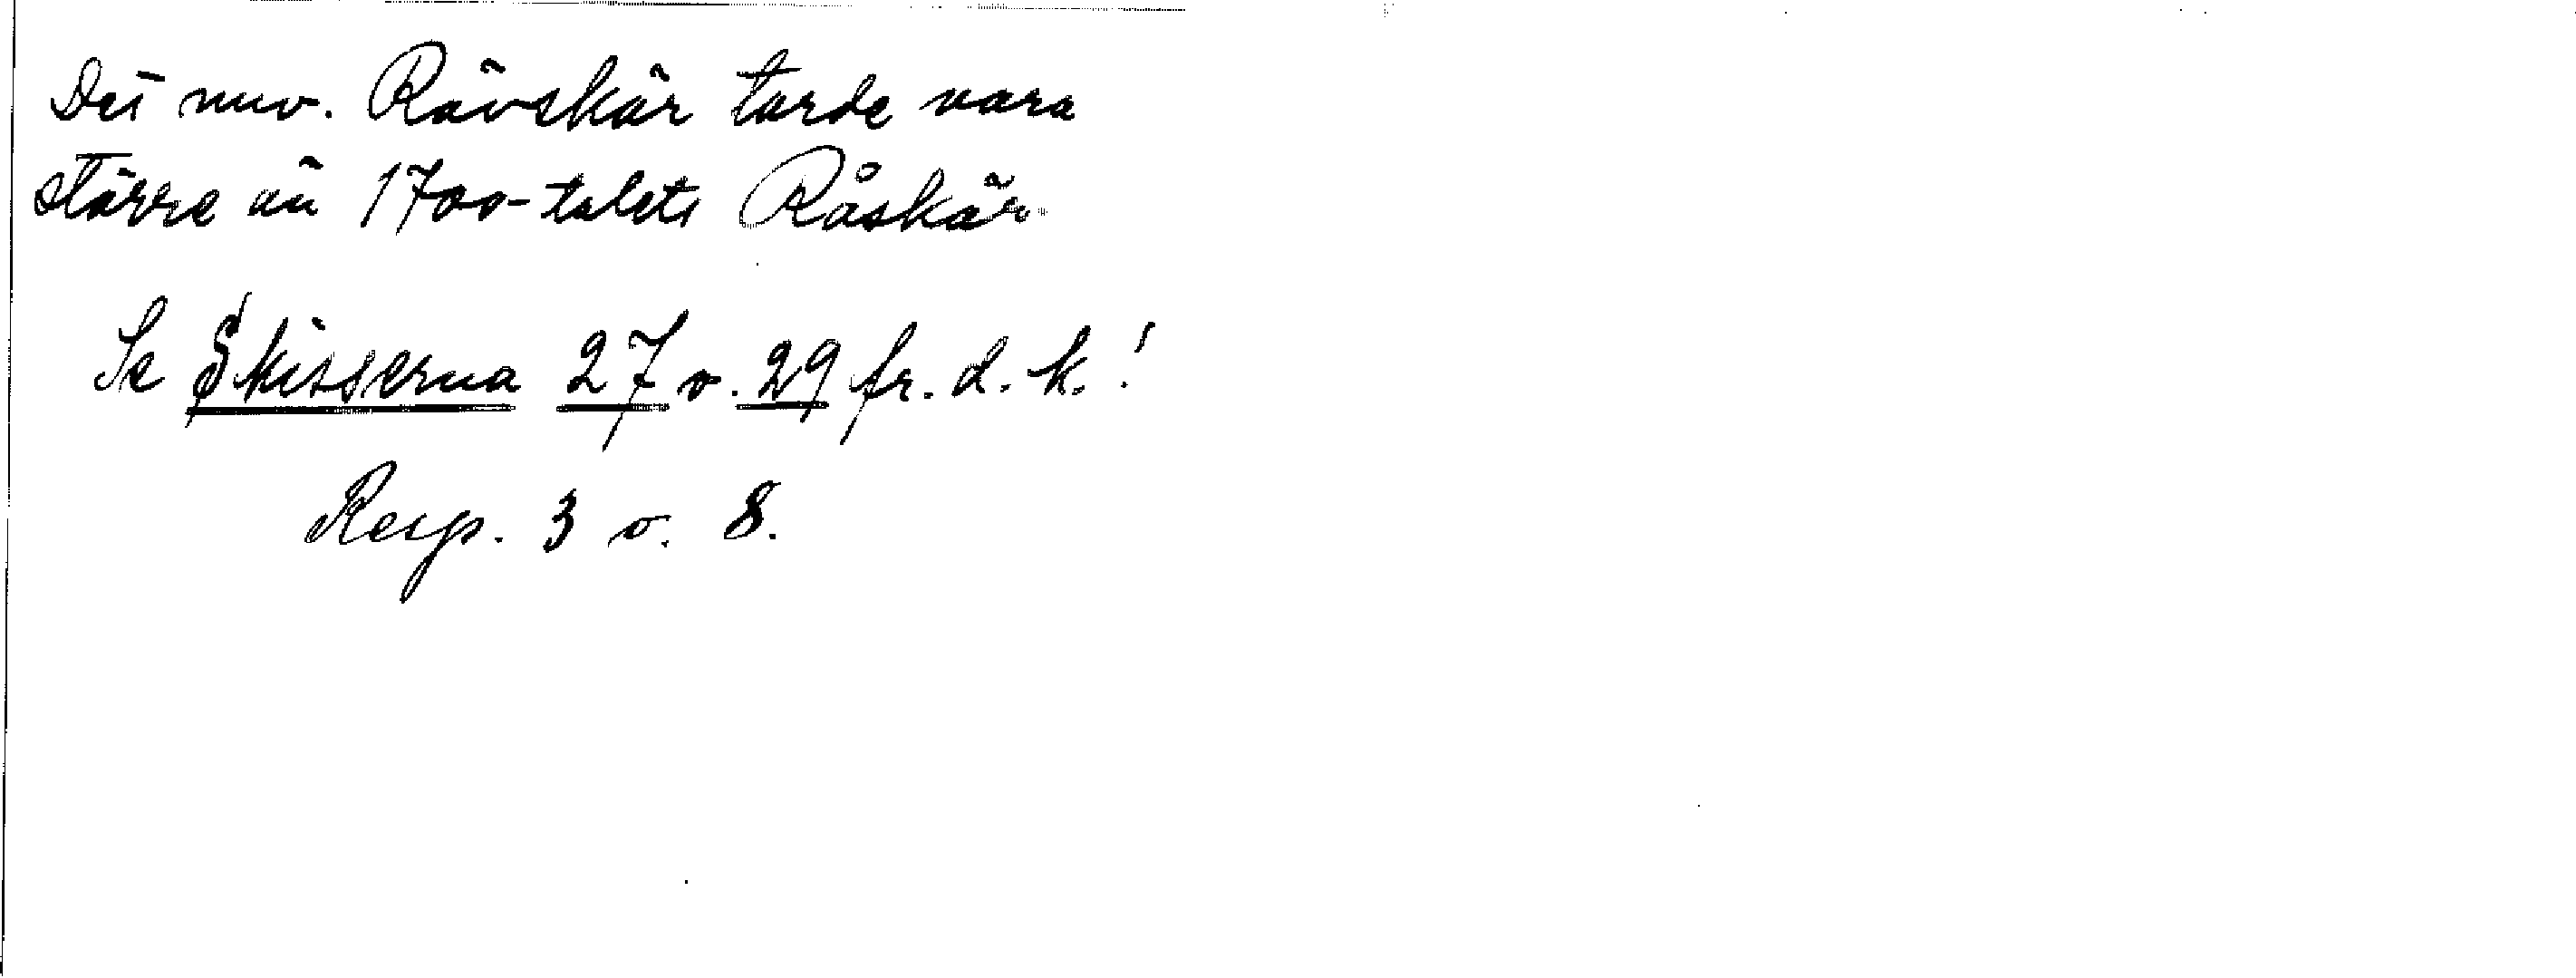 Det nuv. Rävskär torde vara
större än 1700-talets Råskär.
Se Skisserna 27 o. 29 fr. d. k.!
Resp. 3 o. 8.